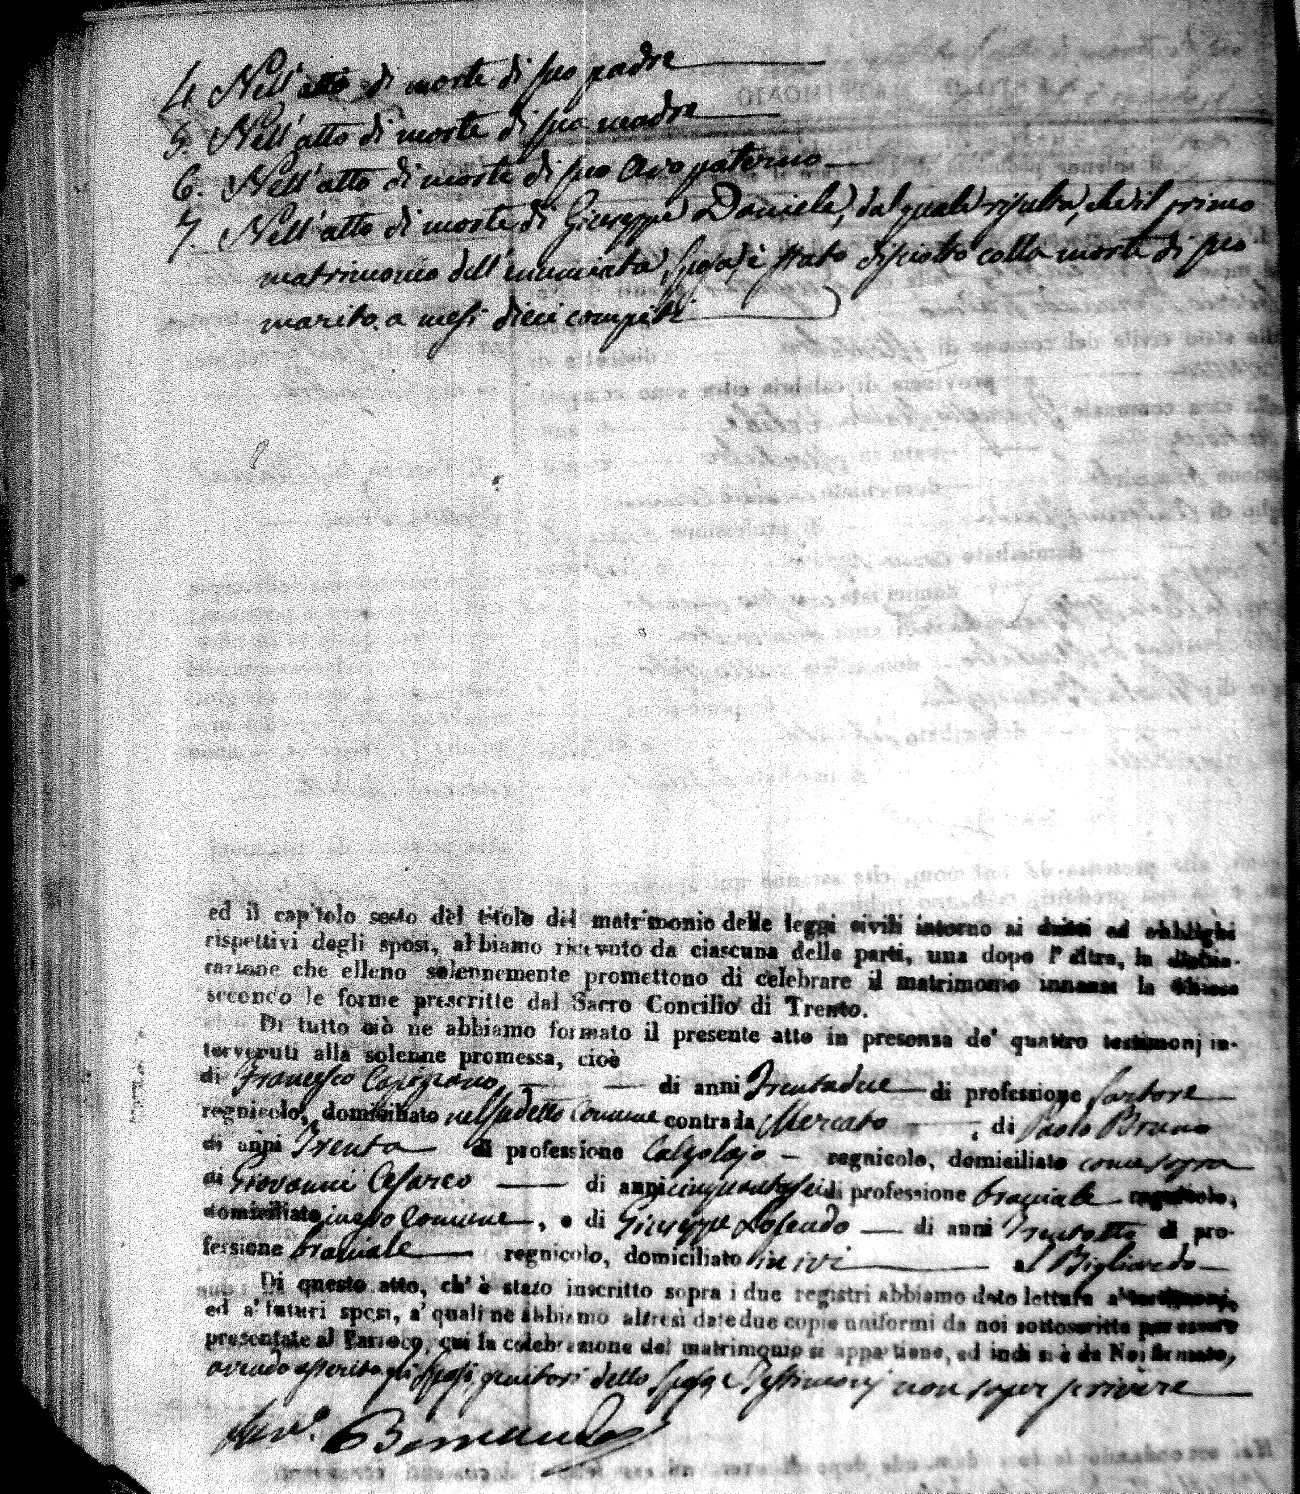 4. Nell'atto di morte di suo padre
5. Nell'atto di morte di sua madre
6. Nell'atto di morte di suo Avo paterno
7. Nell'atto di morte di Giuseppe Daniele, dal quale risulta, che il primo
matrimonio dell'enunciata sposa è stato disciolto colla morte di suo
marito a mesi dieci compiti
ed il capitolo sesto del titolo del matrimonio delle leggi civili intorno ai dritti ed obblighi
rispettivi degli sposi, abbiamo ricevuto da ciascuna delle parti, una dopo l'altra, la dichia-
razione che elleno solennemente promettono di celebrare il matrimonio innanzi la Chiesa
secondo le forme prescritte dal Sacro Concilio di Trento.
Di tutto ciò ne abbiamo formato il presente atto in presenza de' quattro testimonj in-
tervenuti alla solenne promessa, cioè
di Francesco di anni Trentadue di professione Sartore
regnicolo, domiciliato nel sudetto Comune contrada Mercato , di Paolo Bruno
di anni Trenta di professione Calzolajo regnicolo, domiciliato come sopra
di Giovanni Cesareo di anni cinquantasei di professione bracciale regnicolo,
domiciliato in esso Comune , e di Giuseppe di anni Trentotto di pro-
fessione bracciale regnicolo, domiciliato in ivi al Bigliardo
Di questo atto, ch' è stato inscritto sopra i due registri abbiamo dato lettura a' testimonj,
ed a' futuri sposi, a' quali ne abbiamo altresì date due copie uniformi da noi sottoscritte per essere
presentate al Parroco, cui la celebrazione del matrimonio si appartiene, ed indi si è da Noi firmato,
avendo asserito gli Sposi, genitori dello Sposo e Testimonj non saper scrivere